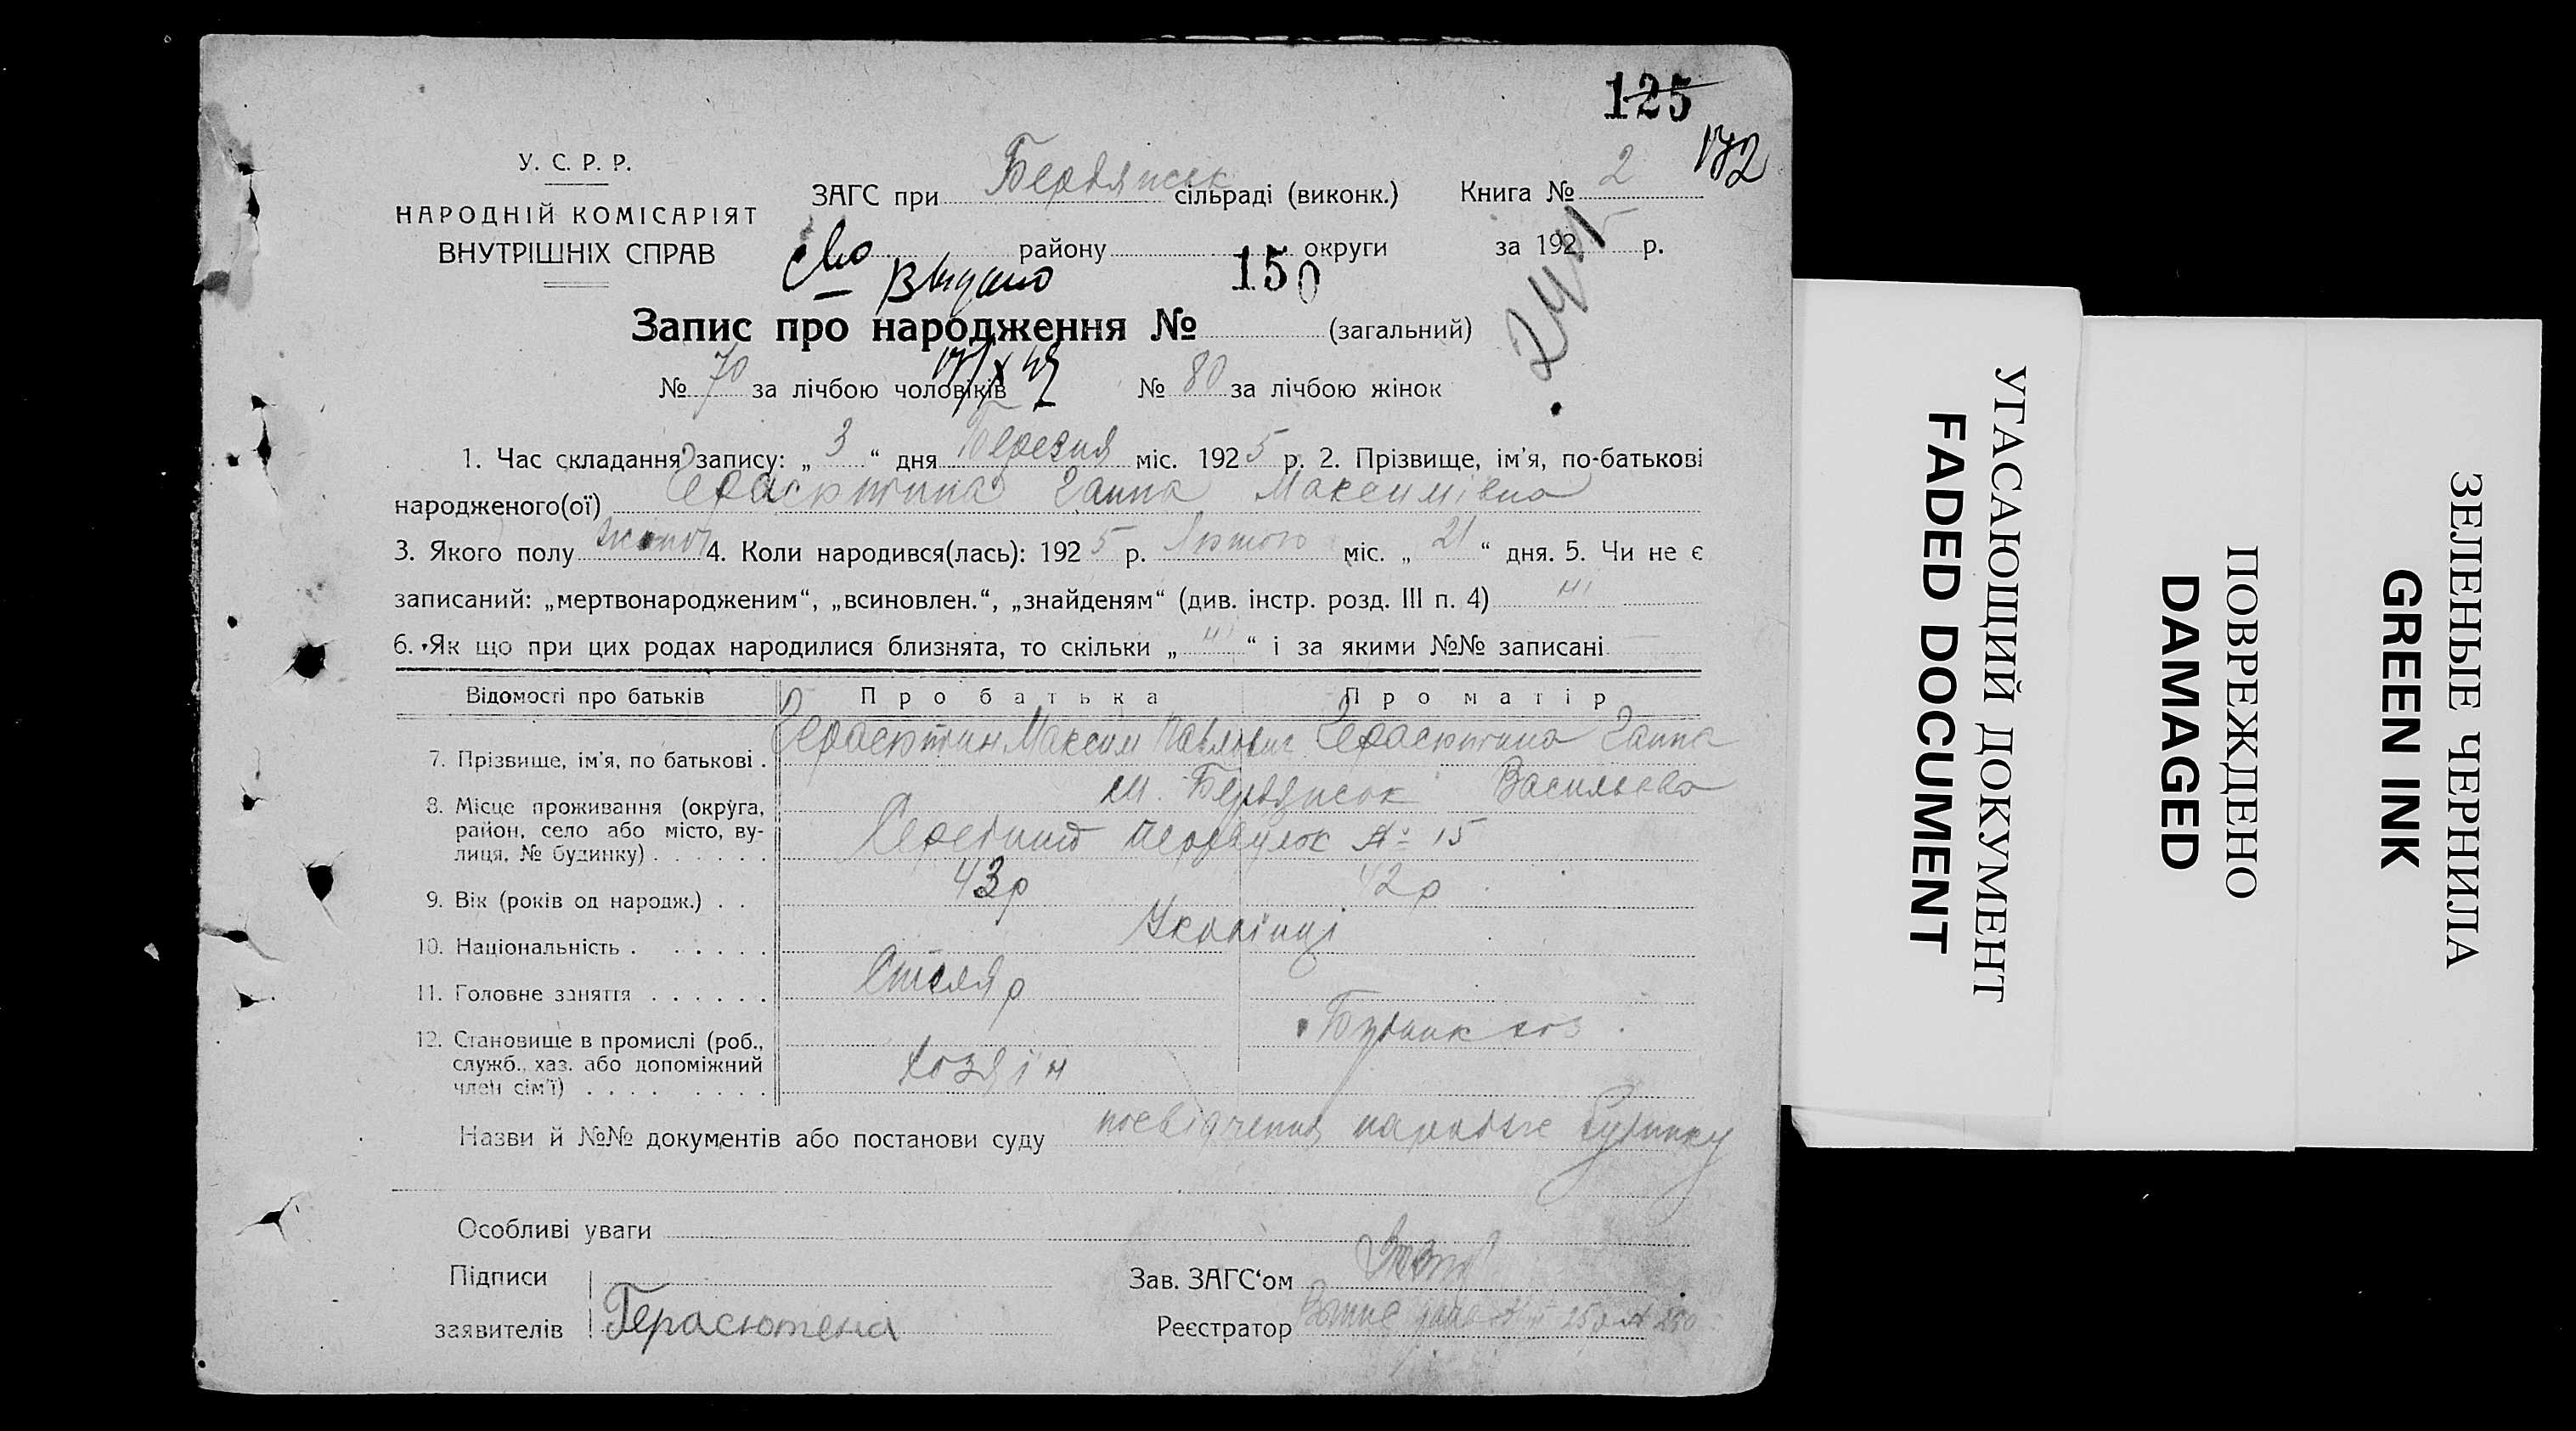 125
172
У. С. Р. Р.
НАРОДНІЙ КОМІСАРІЯТ
ВНУТРІШНІХ СПРАВ
ЗАГС при Бердянськ сільраді (виконк.) Книга № 2
району округи за 192 р.
Св-во выдано
150
Запис про народження № (загальний)
17/X 49
№ 70 за лічбою чоловіків № 80 за лічбою жінок
1. Час складання запису: „ 3 “ дня Березня міс. 192 5 р. 2. Прізвище, ім'я, по-батькові
народженого(ої) Герасютина Ганна Максимівна
3. Якого полу 4. Коли народився(лась): 192 5 р. Лютого міс. „ 21 “ дня. 5. Чи не є
записаний: „мертвонародженим“, „всиновлен.“, „знайденям“ (див. інстр. розд. III п. 4) ні
6. Як що при цих родах народилися близнята, то скільки „ ні “ і за якими №№ записані
Відомості про батьків Про батька Про матір
7. Прізвище, ім'я, по батькові . Герасютин Максим Павлович Герасютина Ганна
Васильевa
8. Місце проживання (округа,
район, село або місто, ву-
лиця, № будинку) . . . . . .
м. Бердянськ
переулок № 15
9. Вік (років од народж.) . . 43 р 42 р
10. Національність . . . . . . Українці
11. Головне заняття . . . . . . Столяр
12. Становище в промислі (роб.,
служб., хаз. або допоміжний
член сім'ї) . . . . . . . .
Хозяїн
Назви й №№ документів або постанови суду посвідчення будинку
Особливі уваги
Підписи
заявителів Герасютена
Зав. ЗАГС‘ом
Реєстратор
УГАСАЮЩИЙ ДОКУМЕНТ
FADED DOCUMENT
ПОВРЕЖДЕНО
DAMAGED
ЗЕЛЕНЫЕ ЧЕРНИЛА
GREEN INK